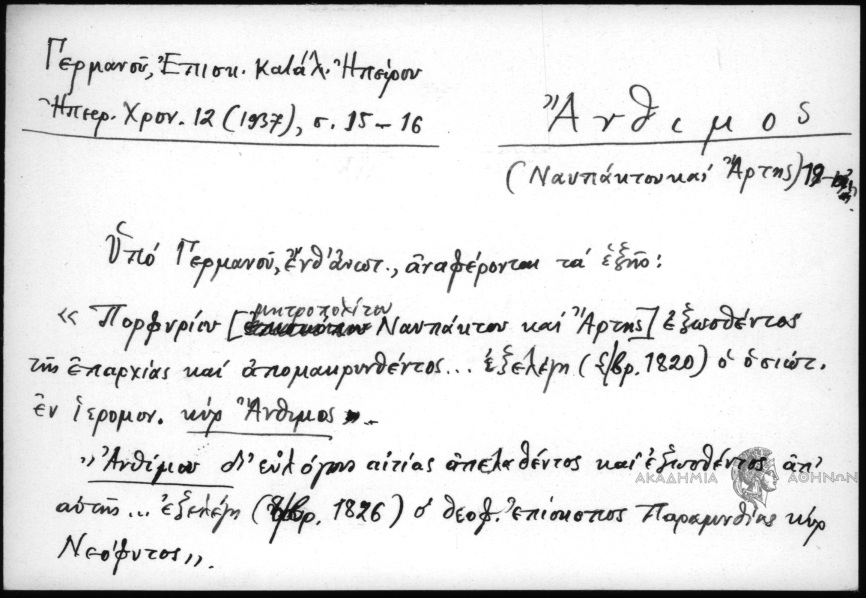 Γερμανοῦ, Ἐπισκ. Κατάλ. Ἠπείρου
Ἠπειρ. Χρον. 12 (1937), σ. 15-16
Ἄνθιμος
(Ναυπάκτου καί Ἄρτης)
Ὑπό Γερμανοῦ, ἔνθ' ἀνωτ., ἀναφέρονται τά ἑξῆς:
μητροπολίτου
« Πορφυρίου [Ναυπάκτου καί Ἄρτης] ἐξωσθέντος
τῆς ἐπαρχίας καί ἀπομακρυνθέντος... ἐξελέγη (/βρ. 1820) ὁ ὁσιώτ.
ἐν ἱερομον. κύρ Ἄνθιμος».
»Ἀνθίμου δι' εὐλόγους αἰτίας ἀπελαθέντος καί ἐξωσθέντος ἀπ'
αὐτῆς... ἐξελέγη (/βρ. 1826) ὁ θεοφ. ἐπίσκοπος Παραμυθίας κύρ
Νεόφυτος».
ΑΚΑΔΗΜΙΑ ΑΘΗΝΩΝ